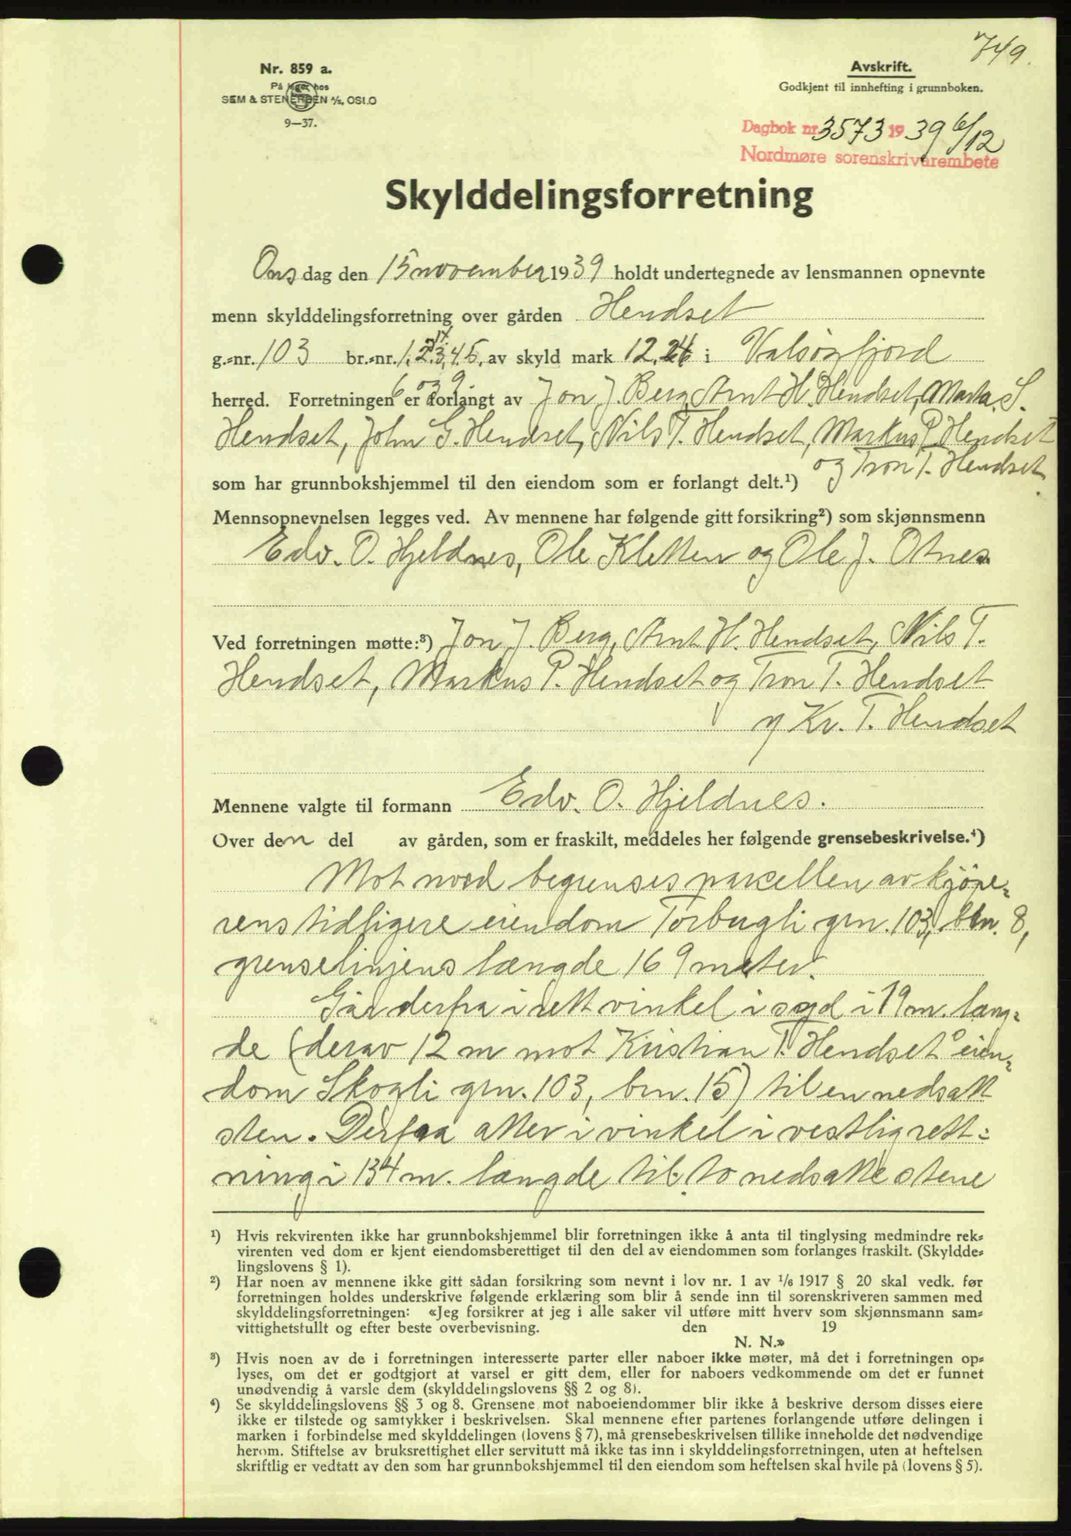 749.
Nr. 859 a.
På lager hos
SEM & STENERSEN A/S, OSLO
9—37.
Avskrift.
Godkjent til innhefting i grunnboken.
Dagbok nr. 3573 1939 6/12
Nordmøre sorenskriverembete
Skylddelingsforretning
Onsdag den 15 november 1939 holdt undertegnede av lensmannen opnevnte
menn skylddelingsforretning over gården Hendset
g.-nr. 103 br.-nr. 1, 2, 3, 4, 5, av skyld mark 12.26 i Valsøyfjord
6 og 9
herred. Forretningen er forlangt av Jon J. Berg, Arnt H. Hendset, Marta S.
Hendset, John G. Hendset, Nils T. Hendset, Markus P. Hendset
og Tron T. Hendset
som har grunnbokshjemmel til den eiendom som er forlangt delt.¹)
Mennsopnevnelsen legges ved. Av mennene har følgende gitt forsikring²) som skjønnsmenn
Edv. O. Hjeldnes, Ole Kletten og Ole J. Otnes
Ved forretningen møtte:³) Jon J. Berg, Arnt H. Hendset, Nils T.
Hendset, Markus P. Hendset og Tron T. Hendset
og Kr. T. Hendset
Mennene valgte til formann Edv. O. Hjeldnes.
Over den del av gården, som er fraskilt, meddeles her følgende grensebeskrivelse.⁴)
Mot nord begrenses parcellen av kjøpe-
rens tidligere eiendom Torbugli grn. 103, brn. 8,
grenselinjens længde 169 meter.
Går derfra i rett vinkel i syd i 19 m. læng-
de (derav 12 m mot Kristian T. Hendset's eien-
dom Skogli grn. 103, brn. 15) til en nedsatt
sten. Derfra atter i vinkel i vestlig rett-
ning i 134 m. længde til to nedsatte stene
¹) Hvis rekvirenten ikke har grunnbokshjemmel blir forretningen ikke å anta til tinglysing medmindre rek-
virenten ved dom er kjent eiendomsberettiget til den del av eiendommen som forlanges fraskilt. (Skyldde-
lingslovens § 1).
²) Har noen av mennene ikke gitt sådan forsikring som nevnt i lov nr. 1 av 1/6 1917 § 20 skal vedk. før
forretningen holdes underskrive følgende erklæring som blir å sende inn til sorenskriveren sammen med
skylddelingsforretningen: «Jeg forsikrer at jeg i alle saker vil utføre mitt hverv som skjønnsmann sam-
vittighetsfullt og efter beste overbevisning. den 19
N. N.»
³) Hvis noen av de i forretningen interesserte parter eller naboer ikke møter, må det i forretningen op-
lyses, om det er godtgjort at varsel er gitt dem, eller for naboers vedkommende om det er funnet
unødvendig å varsle dem (skylddelingslovens §§ 2 og 8).
⁴) Se skylddelingslovens §§ 3 og 8. Grensene mot naboeiendommer blir ikke å beskrive dersom disses eiere
ikke er tilstede og samtykker i beskrivelsen. Skal mennene efter partenes forlangende utføre delingen i
marken i forbindelse med skylddelingen (lovens § 7), må grensebeskrivelsen tillike inneholde det nødvendige
herom. Stiftelse av bruksrettighet eller servitutt må ikke tas inn i skylddelingsforretningen, uten at heftelsen
skriftlig er vedtatt av den som har grunnbokshjemmel til den eiendom som heftelsen skal hvile på (lovens § 5).